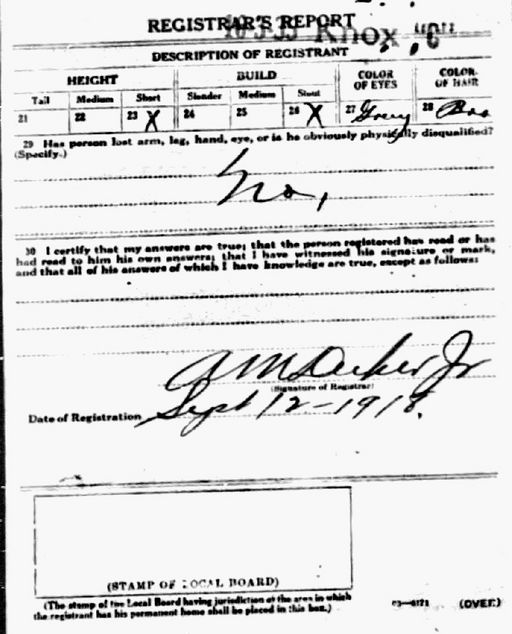 REGISTRAR'S REPORT
Knox "6"
DESCRIPTION OF REGISTRANT
HEIGHT BUILD COLOR OF EYES COLOR OF HAIR
Tall Medium Short Slender Medium Stout
21 22 23 X 24 25 26 X 27 Grey 28
29 Has person lost arm, leg, hand, eye, or is he obviously physically disqualified?
(Specify.)
No,
30 I certify that my answers are true; that the person registered has read or has
had read to him his own answers; that I have witnessed his signature or mark,
and that all of his answers of which I have knowledge are true, except as follows:
A M Decker Jr
(Signature of Registrar)
Date of Registration Sept 12-1918.
(STAMP OF LOCAL BOARD)
(The stamp of the Local Board having jurisdiction of the area in which
the registrant has his permanent home shall be placed in this box.)
03—6171 (OVER.)